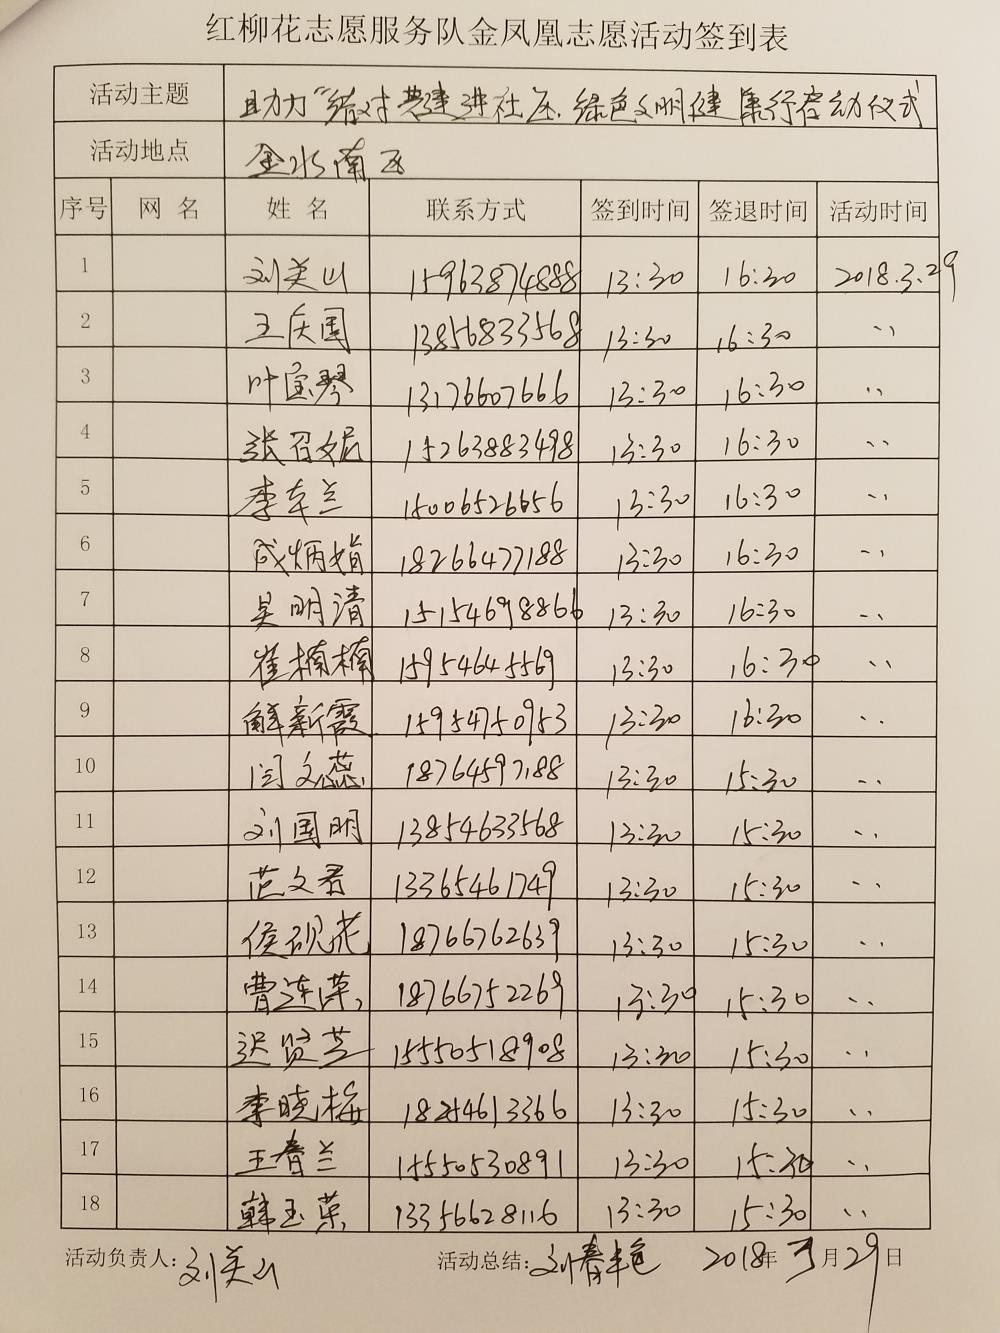 红柳花志愿服务队金凤凰志愿活动签到表
活动主题 助力"结对共建进社区、绿色文明健康行启动仪式
活动地点 金水南区
序号 网名 姓名 联系方式 签到时间 签退时间 活动时间
1 刘美山 15963874888 13:30 16:30 2018.3.29
2 王庆国 13856833568 13:30 16:30 ··
3 叶宝琴 13176607666 13:30 16:30 ··
4 张召妮 15263883498 13:30 16:30 ··
5 李车兰 15006526656 13:30 16:30 ··
6 成炳娟 18266477188 13:30 16:30 ··
7 吴明清 15154698866 13:30 16:30 ··
8 崔楠楠 15954645569 13:30 16:30 ··
9 解新霞 15954750953 13:30 16:30 ··
10 闫文蕊 18764597188 13:30 15:30 ··
11 刘国明 13854633568 13:30 15:30 ··
12 范文君 13365461749 13:30 15:30 ··
13 侯砚花 18766762639 13:30 15:30 ··
14 曹连萍 18766752269 13:30 15:30 ··
15 迟贤芝 15550518908 13:30 15:30 ··
16 李晓梅 18254613366 13:30 15:30 ··
17 王春兰 15550530891 13:30 15:30 ··
18 韩玉荣 13356628116 13:30 15:30 ··
活动负责人:刘美山 活动总结:刘春艳 2018年3月29日